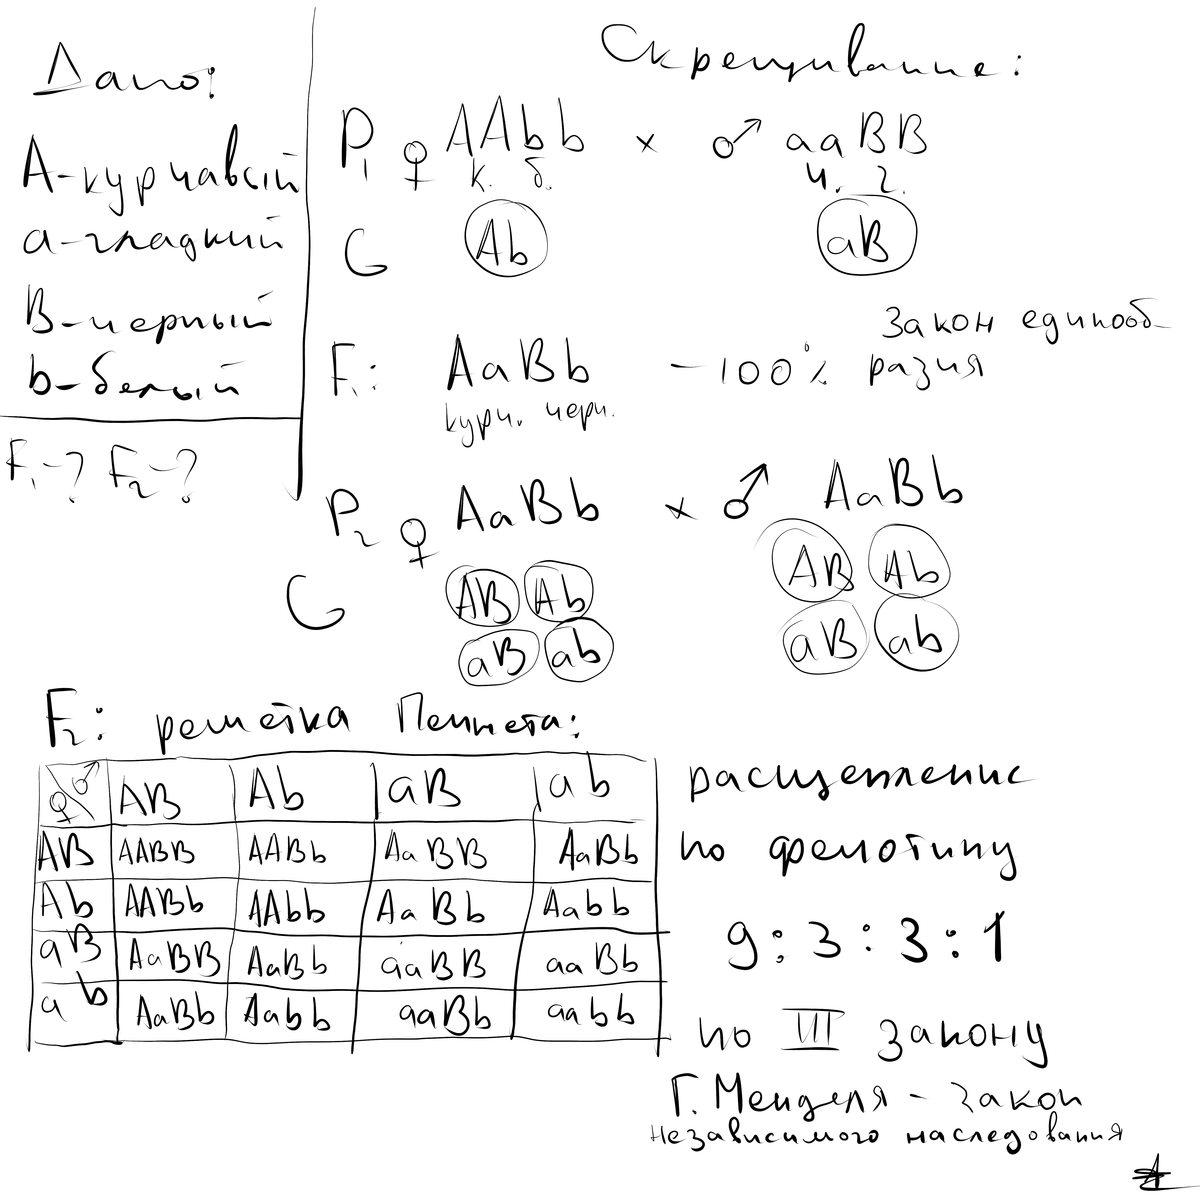 Дано:
А-курчавый
а-гладкий
В-черный
b-белый
F₁-? F₂-?
Скрещивание:
P₁ ♀ AAbb × ♂ aaBB
к. б. ч. г.
G Ab aB
F₁: AaBb -100% Закон единооб-
разия
курч. черн.
P₂ ♀ AaBb × ♂ AaBb
G AB Ab AB Ab
aB ab aB ab
F₂: решётка Пеннета:
♀ ♂ AB Ab aB ab
AB AABB AABb AaBB AaBb
Ab AABb AAbb AaBb Aabb
aB AaBB AaBb aaBB aaBb
ab AaBb Aabb aaBb aabb
расщепление
по фенотипу
9:3:3:1
по III закону
Г. Менделя - Закон
независимого наследования